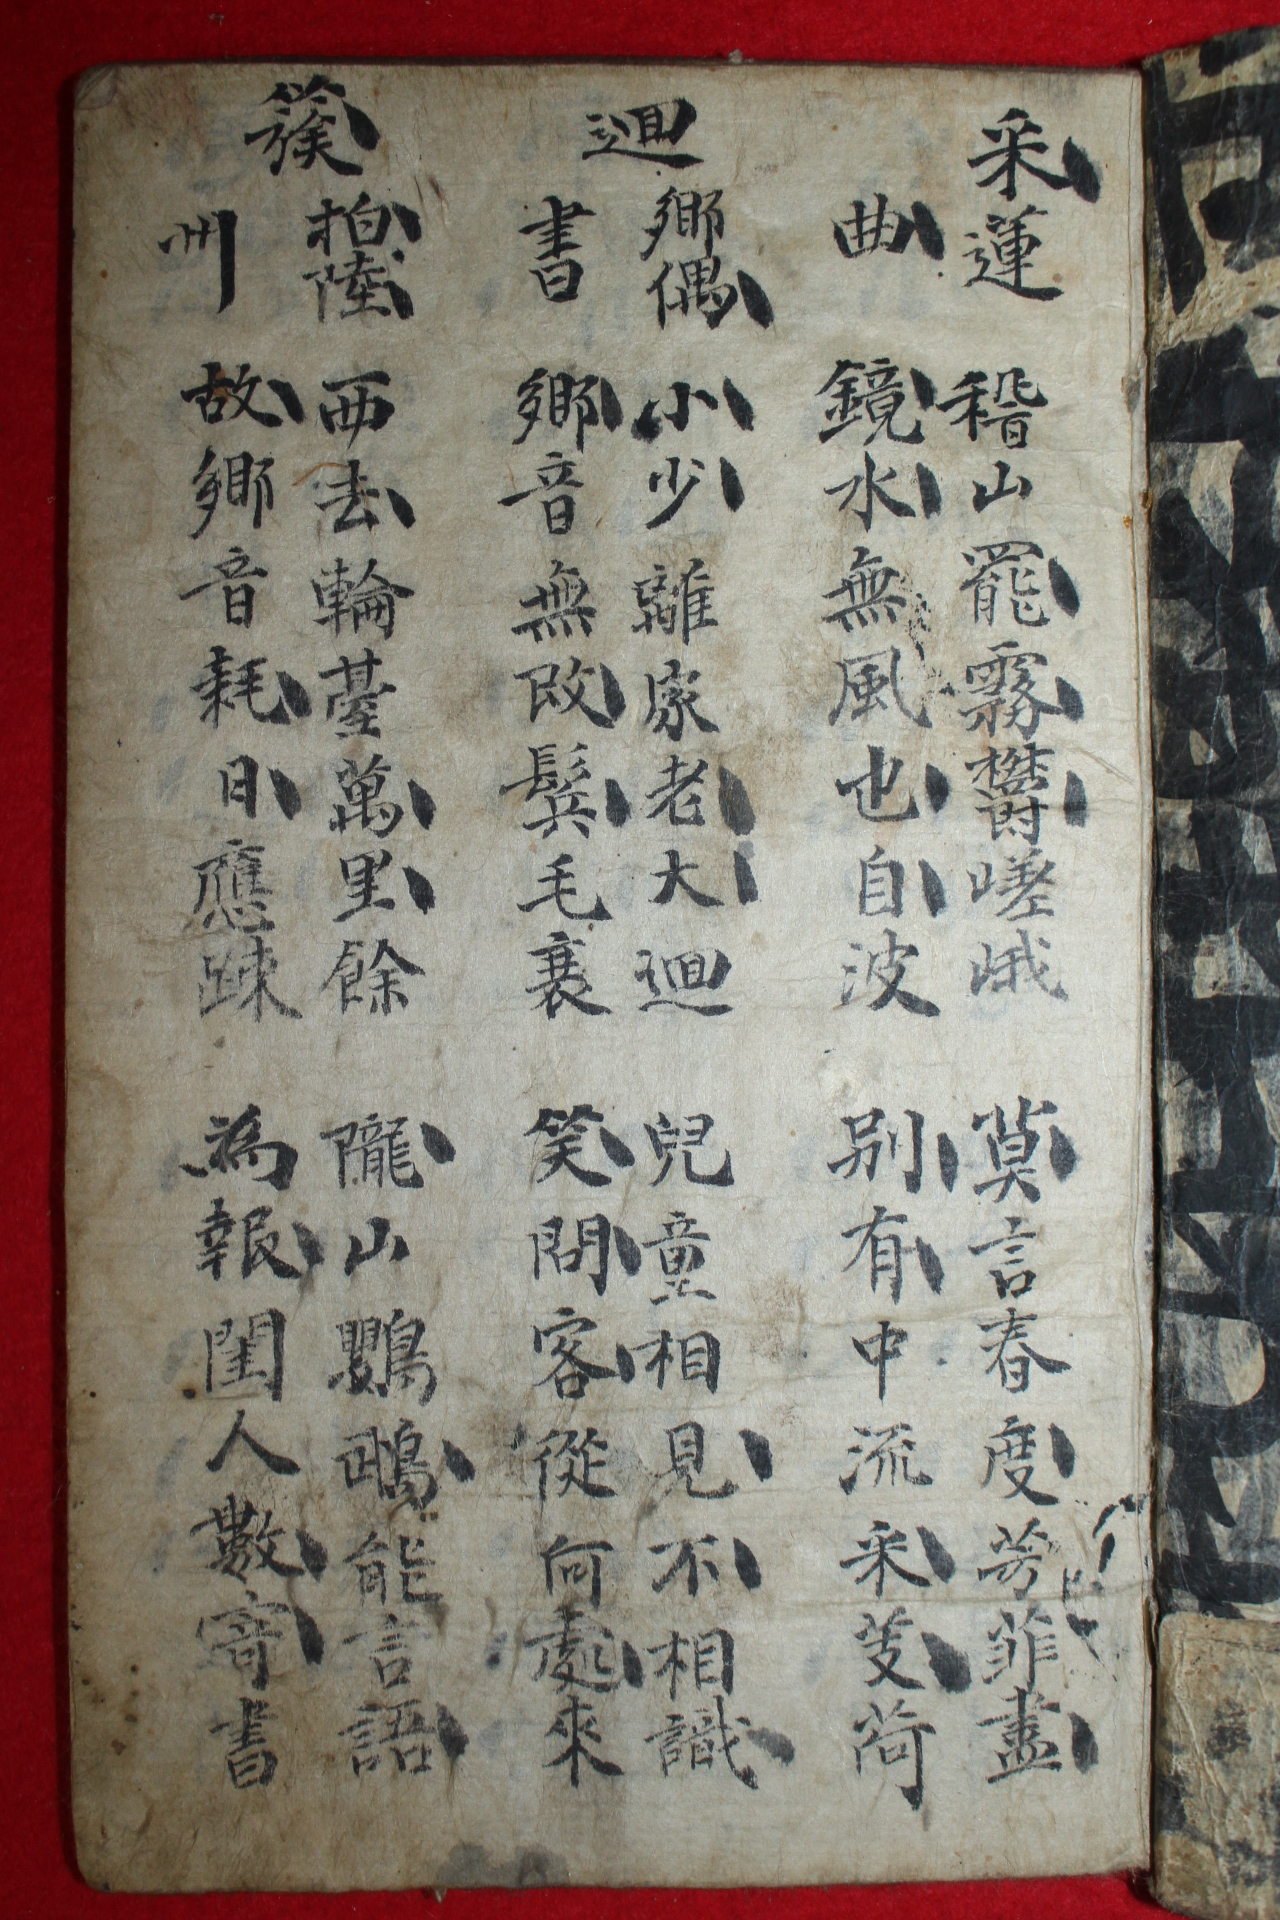 采蓮
曲
稽山罷霧欝嵯峨
鏡水無風也自波
莫言春度芳菲盡
別有中流采芰荷
迴鄉偶
書
小少離家老大迴
鄉音無改鬂毛衰
兒童相見不相識
笑問客從何處來
州
西去輪䑓萬里餘
故鄉音耗日應踈
隴山鸚鵡能言語
為報閨人數寄書